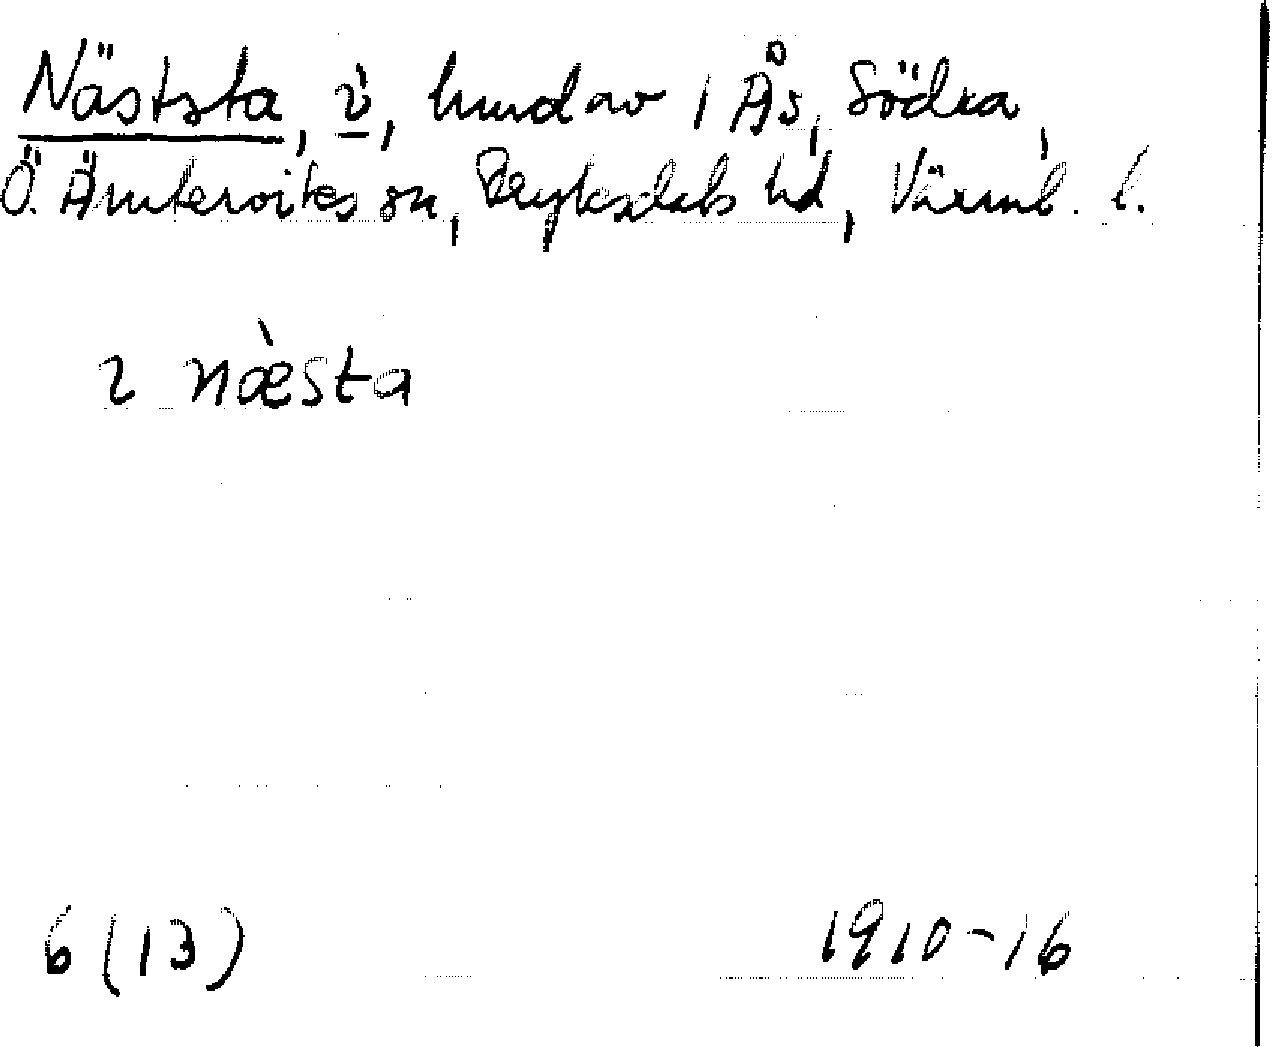 Näststa, i, hmd av 1 Ås, Södra,
Ö. Ämterviks sn, Fryksdals hd, Värml. l.
ı næ̀sta
6 (13) 1910-16